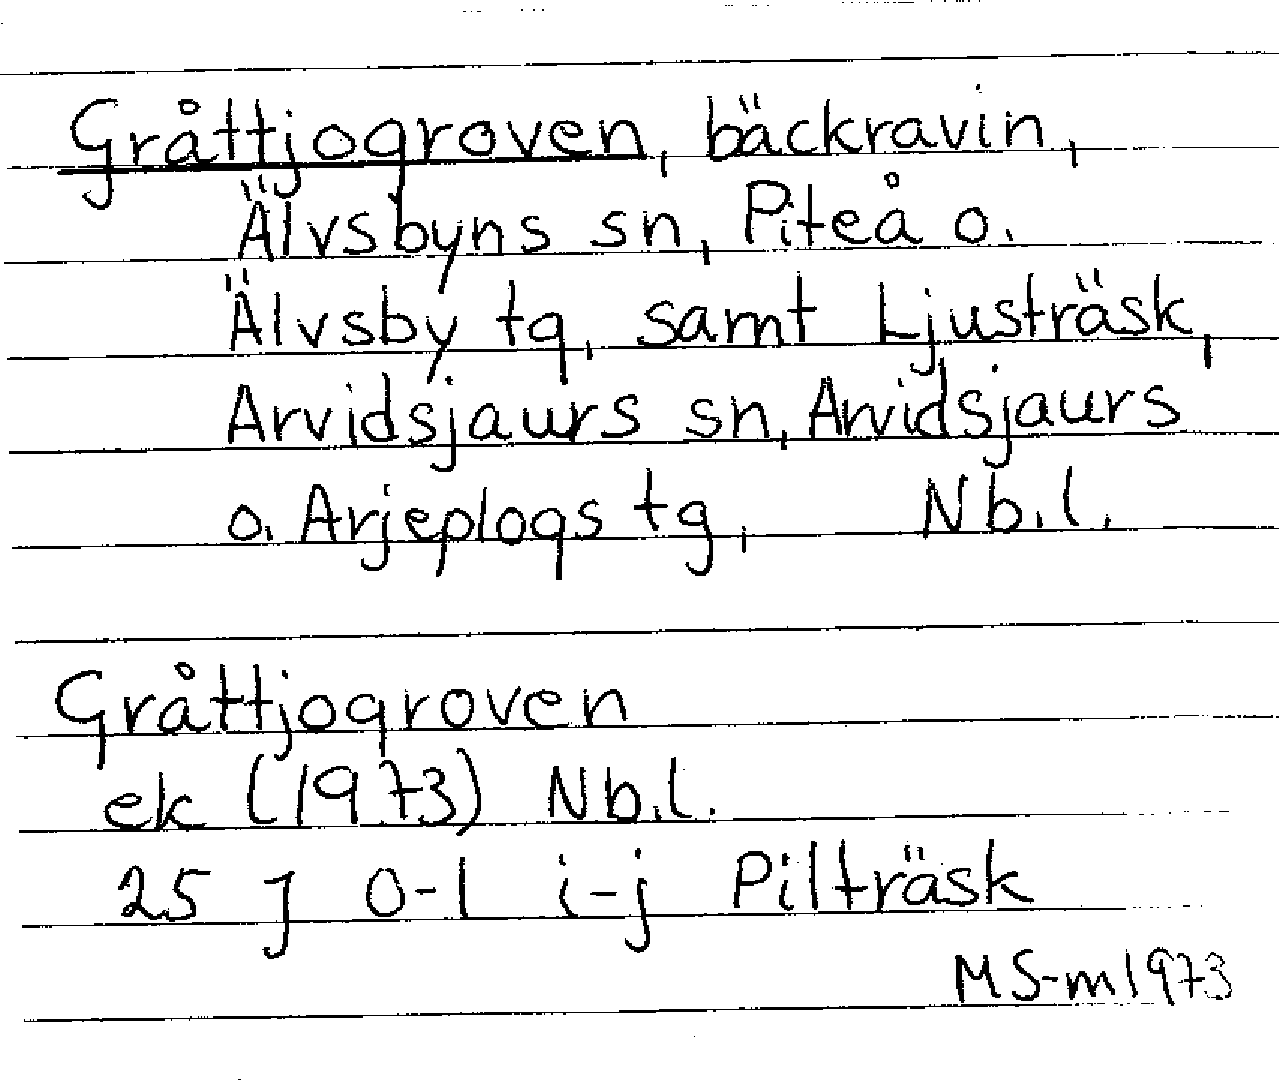 Gråttjogroven, bäckravin,
Älvsbyns sn, Piteå o.
Älvsby tg, samt Ljusträsk,
Arvidsjaurs sn, Arvidsjaurs
o. Arjeplogs tg, Nb.l.
Gråttjogroven
ek (1973) Nb.l.
25 J 0-1 i-j Pilträsk
MS-m1973